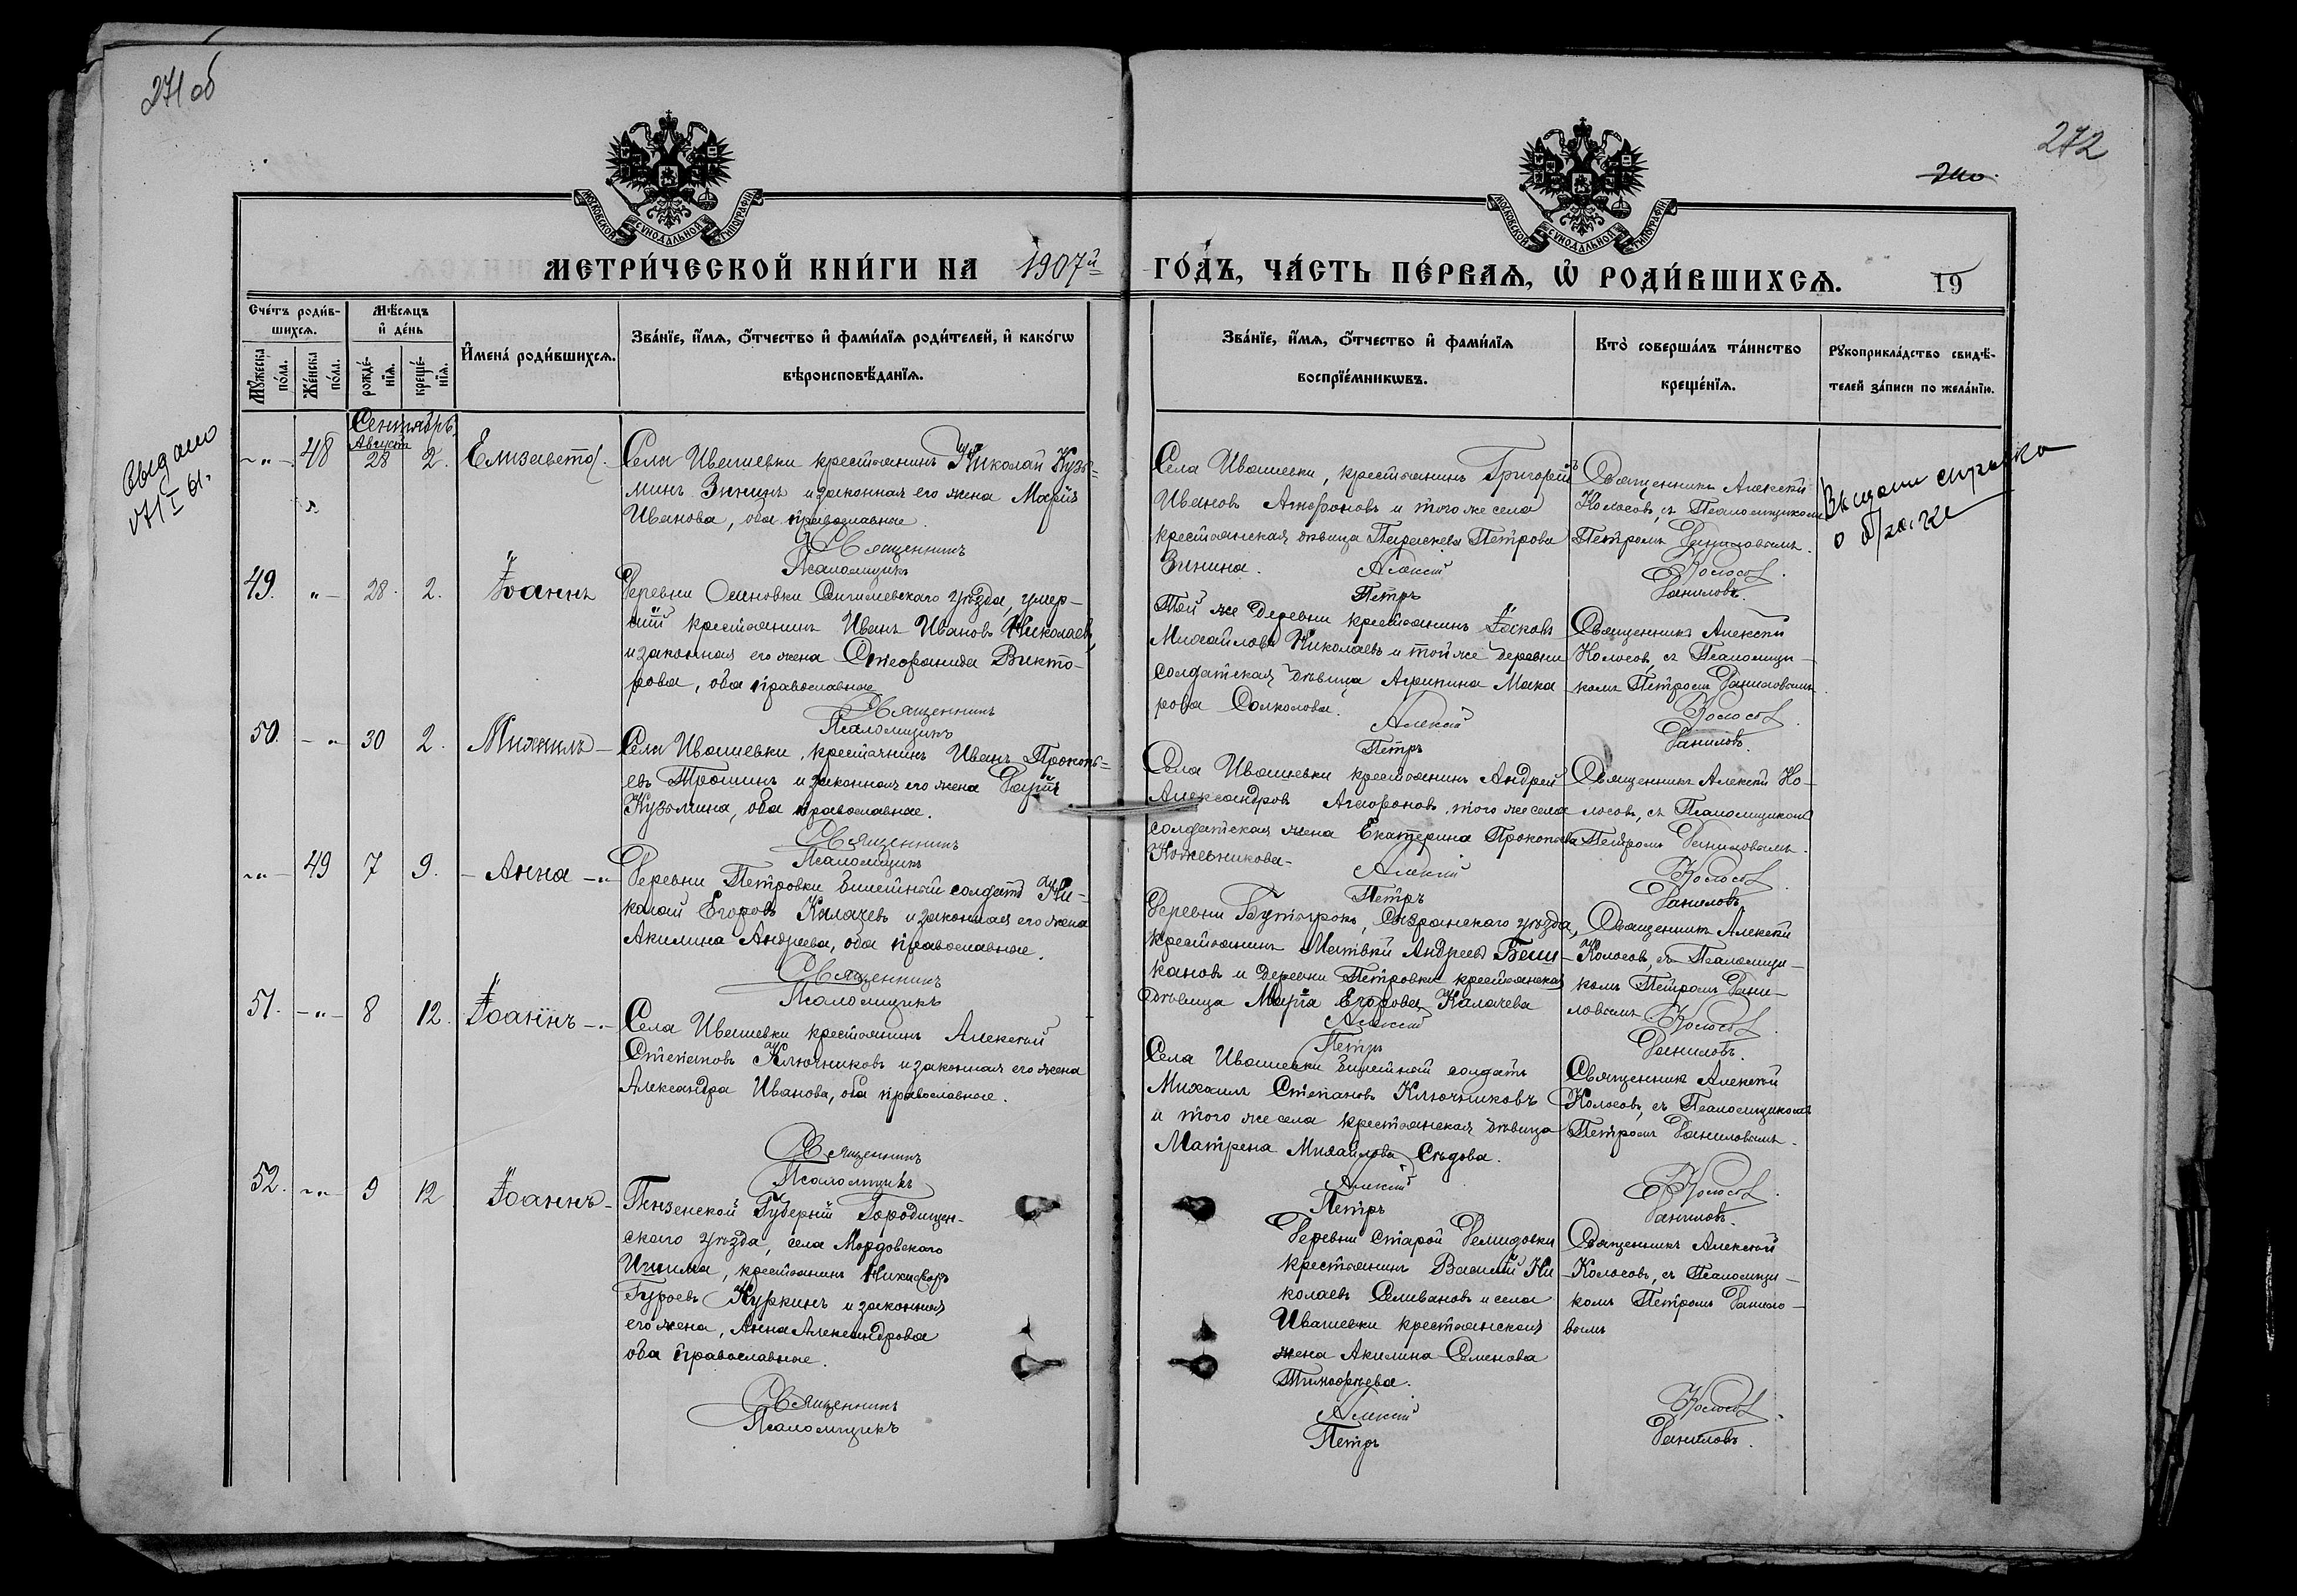 271 об
272
МОСКОВСКОЙ СѴНОДАЛЬНОЙ ТИПОГРАФІИ
МОСКОВСКОЙ СѴНОДАЛЬНОЙ ТИПОГРАФІИ
МЕТРИ́ЧЕСКОЙ КНИ́ГИ НА 1907й ГО́ДЪ, ЧА́СТЬ ПЕ́РВАЯ, Ѡ҆ РОДИ́ВШИХСѦ. 19
Сче́тъ роди́в-
шихсѧ.
Мꙋ́жеска по́ла.
Же́нска по́ла.
Мѣ́сѧцъ
и҆ де́нь
рожде́-
нїѧ.
креще́-
нїѧ.
И҆мена̀ роди́вшихсѧ.
Зва́нїе, и҆́мѧ, ѻ҆́тчество и҆ фами́лїѧ роди́телей, и҆ како́гѡ
вѣроисповѣ́данїѧ.
Зва́нїе, и҆́мѧ, ѻ҆́тчество и҆ фами́лїѧ
воспрїе́мникѡвъ.
Кто̀ соверша́лъ та́инство
креще́нїѧ.
Рꙋкоприкла́дство свидѣ́-
телей за́писи по жела́нїю.
Сентябрь.
Август
выдано
48 28 2. Елизавета.
Села Ивашевки крестьянинъ Николай Кузь-
минъ Зининъ и законная его жена Марія
Иванова, оба православные.
Священникъ
Псаломщикъ
Села Ивашевки, крестьянинъ Григорій
Ивановъ Агафоновъ и того же села
крестьянская дѣвица Параскева Петрова
Зинина.
Алексій
Петръ
Священникъ Алексій
Колосовъ, съ Псаломщикомъ
Петромъ Даниловымъ.
Колосовъ.
Даниловъ.
Выдана справка
о
49. 28. 2. Іоаннъ
Деревни Осиновки Сенгилеевскаго уѣзда, умер-
шій крестьянинъ Иванъ Ивановъ Николаевъ,
и законная его жена Стефанида Викто-
рова, оба православные
Священникъ
Псаломщикъ
Той же деревни крестьянинъ Іаковъ
Михайловъ Николаевъ и той же деревни
солдатская дѣвица Агрипина Мака-
рова
Алексій
Петръ
Священникъ Алексій
Колосовъ, съ Псаломщи-
комъ Петромъ Даниловымъ.
Колосовъ.
Даниловъ.
50. 30 2. Михаилъ
Села Ивашевки, крестьянинъ Иванъ Прокопь-
евъ Трошинъ и законная его жена Дарія
Кузьмина, оба православные.
Священникъ
Псаломщикъ
Села Ивашевки крестьянинъ Андрей
Александровъ Агафоновъ, того же села
солдатская жена Екатерина Прокопьева
Кожевникова
Алексій
Петръ
Священникъ Алексій Ко-
лосовъ, съ Псаломщикомъ
Петромъ Даниловымъ.
Колосовъ.
Даниловъ.
49 7 9. Анна
Деревни Петровки билетный солдатъ Ни-
колай Егоровъ Калачевъ и законная его жена
Акилина Андреева, оба православные.
Священникъ
Псаломщикъ
Деревни Сызранскаго уѣзда,
крестьянинъ Матвѣй Андреевъ Баш-
кановъ и деревни Петровки крестьянская
дѣвица Марія Егорова Калачева
Алексій
Петръ
Священникъ Алексій
Колосовъ, съ Псаломщи-
комъ Петромъ Дани-
ловымъ.
Колосовъ.
Даниловъ.
51. 8 12. Іоаннъ
Села Ивашевки крестьянинъ Алексѣй
Степановъ Ключниковъ и законная его жена
Александра Иванова, оба православные.
Священникъ
Псаломщикъ
Села Ивашевки билетный солдатъ
Михаилъ Степановъ Ключниковъ
и того же села крестьянская дѣвица
Матрена Михайлова Сѣдова.
Алексій
Петръ
Священникъ Алексій
Колосовъ, съ Псаломщикомъ
Петромъ Даниловымъ.
Колосовъ.
Даниловъ.
52. 9 12 Іоаннъ
Пензенской Губерніи Городищен-
скаго уѣзда, села Мордовскаго
Ишима, крестьянинъ Никифоръ
Гурьевъ Куркинъ и законная
его жена, Анна Александрова
оба православные.
Священникъ
Псаломщикъ
Деревни Старой Демидовки
крестьянинъ Василій Ни-
колаевъ Селивановъ и села
Ивашевки крестьянская
жена Акилина Семенова
Тимофѣева.
Алексій
Петръ
Священникъ Алексій
Колосовъ, съ Псаломщи-
комъ Петромъ Данило-
вымъ
Колосовъ.
Даниловъ.